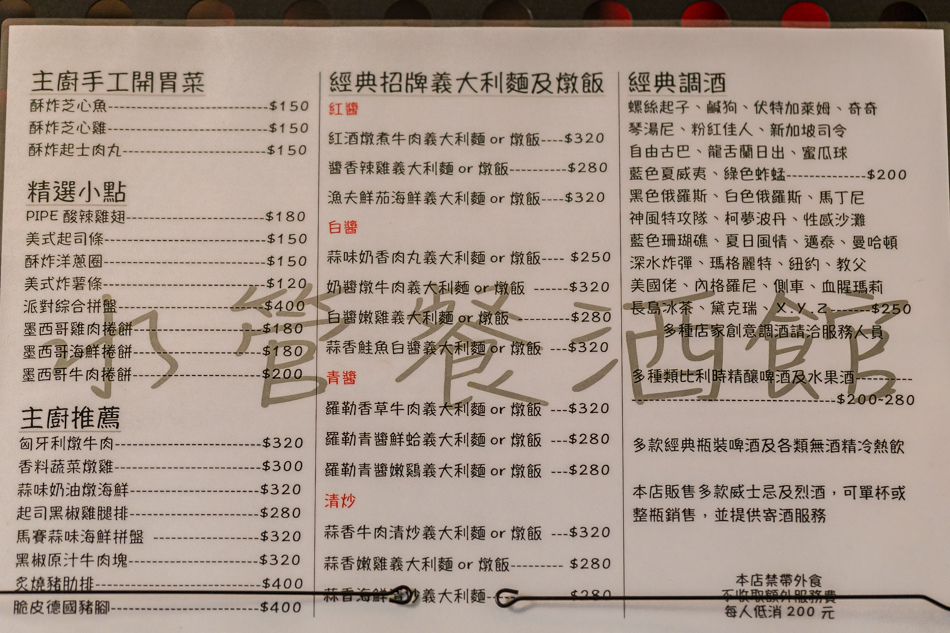 主廚手工開胃菜
酥炸芝心魚----------------------$150
酥炸芝心雞----------------------$150
酥炸起士肉丸--------------------$150
精選小點
PIPE 酸辣雞翅-------------------$180
美式起司條----------------------$150
酥炸洋蔥圈----------------------$150
美式炸薯條----------------------$120
派對綜合拼盤--------------------$400
墨西哥雞肉捲餅------------------$180
墨西哥海鮮捲餅------------------$180
墨西哥牛肉捲餅------------------$200
主廚推薦
匈牙利燉牛肉--------------------$320
香料蔬菜燉雞--------------------$300
蒜味奶油燉海鮮------------------$320
起司黑椒雞腿排------------------$280
馬賽蒜味海鮮拼盤 ---------------$320
黑椒原汁牛肉塊------------------$320
炙燒豬肋排----------------------$400
脆皮德國豬腳--------------------$400
經典招牌義大利麵及燉飯
紅醬
紅酒燉煮牛肉義大利麵 or 燉飯----$320
醬香辣雞義大利麵 or 燉飯--------$280
漁夫鮮茄海鮮義大利麵 or 燉飯----$320
白醬
蒜味奶香肉丸義大利麵 or 燉飯---- $250
奶醬燉牛肉義大利麵 or 燉飯 -----$320
白醬嫩雞義大利麵 or 燉飯--------$280
蒜香鮭魚白醬義大利麵 or 燉飯----$320
青醬
羅勒香草牛肉義大利麵 or 燉飯 ---$320
羅勒青醬鮮蛤義大利麵 or 燉飯 ---$280
羅勒青醬嫩鷄義大利麵 or 燉飯 ---$280
清炒
蒜香牛肉清炒義大利麵 or 燉飯 ---$320
蒜香嫩雞義大利麵 or 燉飯--------$280
蒜香海鮮清炒義大利麵------------$280
經典調酒
螺絲起子、鹹狗、伏特加萊姆、奇奇
琴湯尼、粉紅佳人、新加坡司令
自由古巴、龍舌蘭日出、蜜瓜球
藍色夏威夷、綠色蚱蜢------------$200
黑色俄羅斯、白色俄羅斯、馬丁尼
神風特攻隊、柯夢波丹、性感沙灘
藍色珊瑚礁、夏日風情、邁泰、曼哈頓
深水炸彈、瑪格麗特、紐約、教父
美國佬、內格羅尼、側車、血腥瑪莉
長島冰茶、黛克瑞、X.Y.Z------$250
多種店家創意調酒請洽服務人員
多種類比利時精釀啤酒及水果酒--------
-----------------------------$200-280
多款經典瓶裝啤酒及各類無酒精冷熱飲
本店販售多款威士忌及烈酒，可單杯或
整瓶銷售，並提供寄酒服務
本店禁帶外食
不收取額外服務費
每人低消 200 元
水管餐酒館